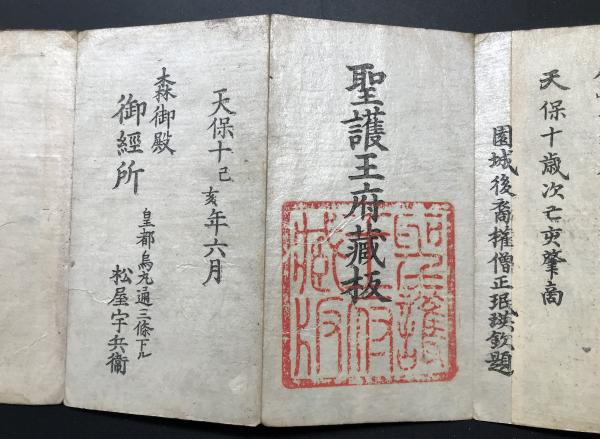 天保十歳次己亥肇商
園城後裔権僧正珉珙欽題
聖護王府藏板
聖護王府藏板
天保十己亥年六月
森御殿
御經所
皇都烏丸通三條下ル
松屋宇兵衞